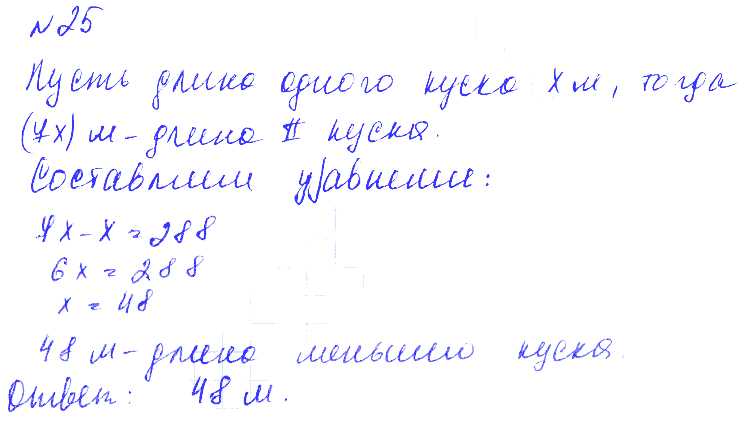 №25
Пусть длина одного куска x м, тогда
(7x) м - длина II куска.
Составим уравнение:
7x - x = 288
6x = 288
x = 48
48 м - длина меньшего куска.
Ответ: 48 м.